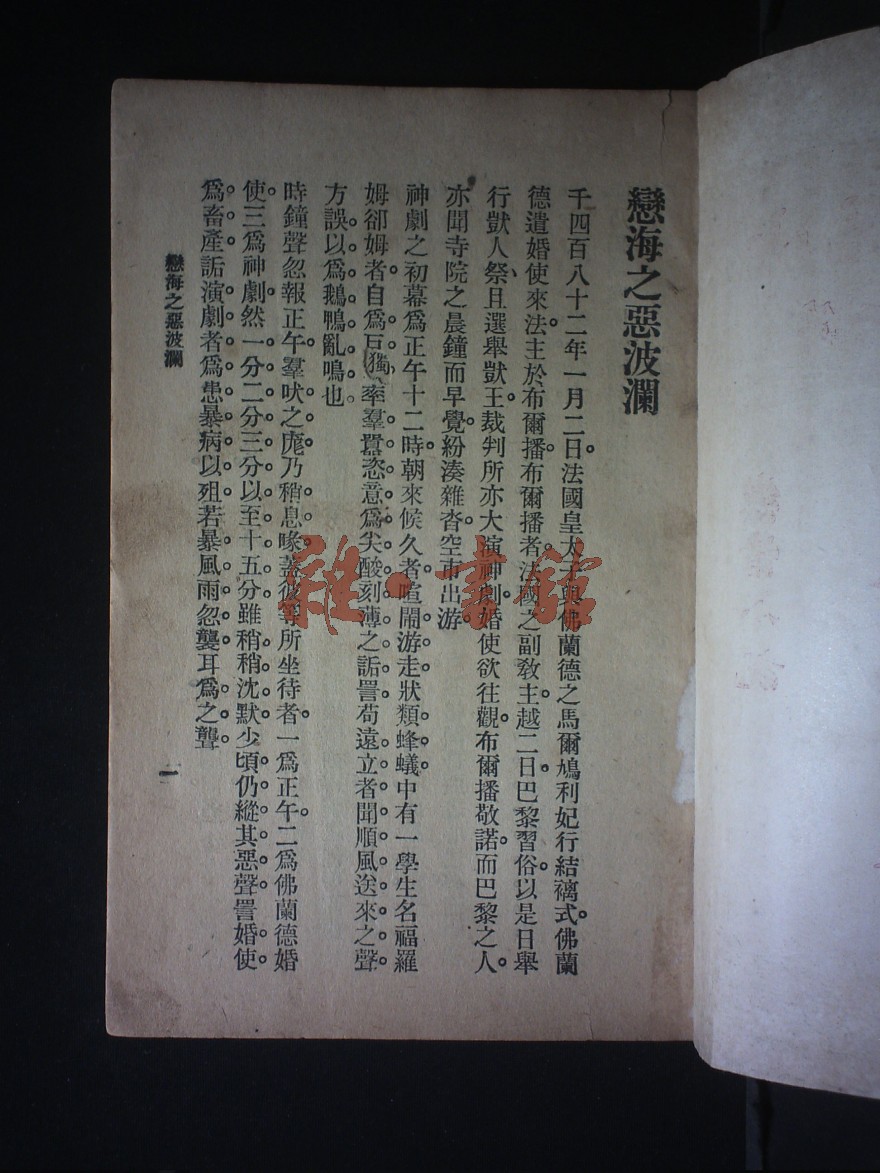 戀海之惡波瀾
千四百八十二年一月二日。法國皇太子與佛蘭德之馬爾鳩利妃行結褵式。佛蘭
德遣婚使來法。主於布爾播。布爾播者。法國之副敎主。越二日。巴黎習俗。以是日舉
行獃人祭。且選舉獃王。裁判所亦大演神劇。婚使欲往觀。布爾播敬諾。而巴黎之人。
亦聞寺院之晨鐘而早覺。紛湊雜沓。空市出游。
神劇之初幕。爲正午十二時。朝來候久者。喧鬧游走。狀類蜂蟻。中有一學生名福羅
姆卻姆者。自爲巨獨。率羣囂恣意。爲尖酸刻薄之詬詈。苟遠立者聞順風送來之聲。
方誤以爲鵝鴨亂鳴也。
時鐘聲忽報正午。羣吠之厖。乃稍息喙。蓋彼等所坐待者。一爲正午。二爲佛蘭德婚
使。三爲神劇。然一分二分三分以至十五分。雖稍稍沈默。少頃仍縱其惡聲。詈婚使
爲畜產。詬演劇者爲患暴病以殂。若暴風雨忽襲。耳爲之聾。
戀海之惡波瀾
一
雜·書館